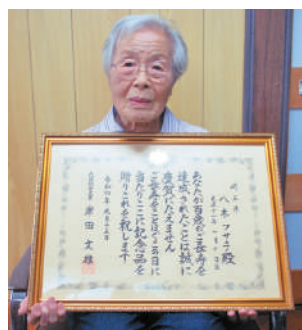 八木フサヲ殿
あなたが百歳のご長寿を
達成されたことは誠に
慶賀にたえません
ご長寿をことほぐ本日に
当たりここに記念品を
贈りこれを祝します
令和四年九月十五日
内閣総理大臣 岸田文雄